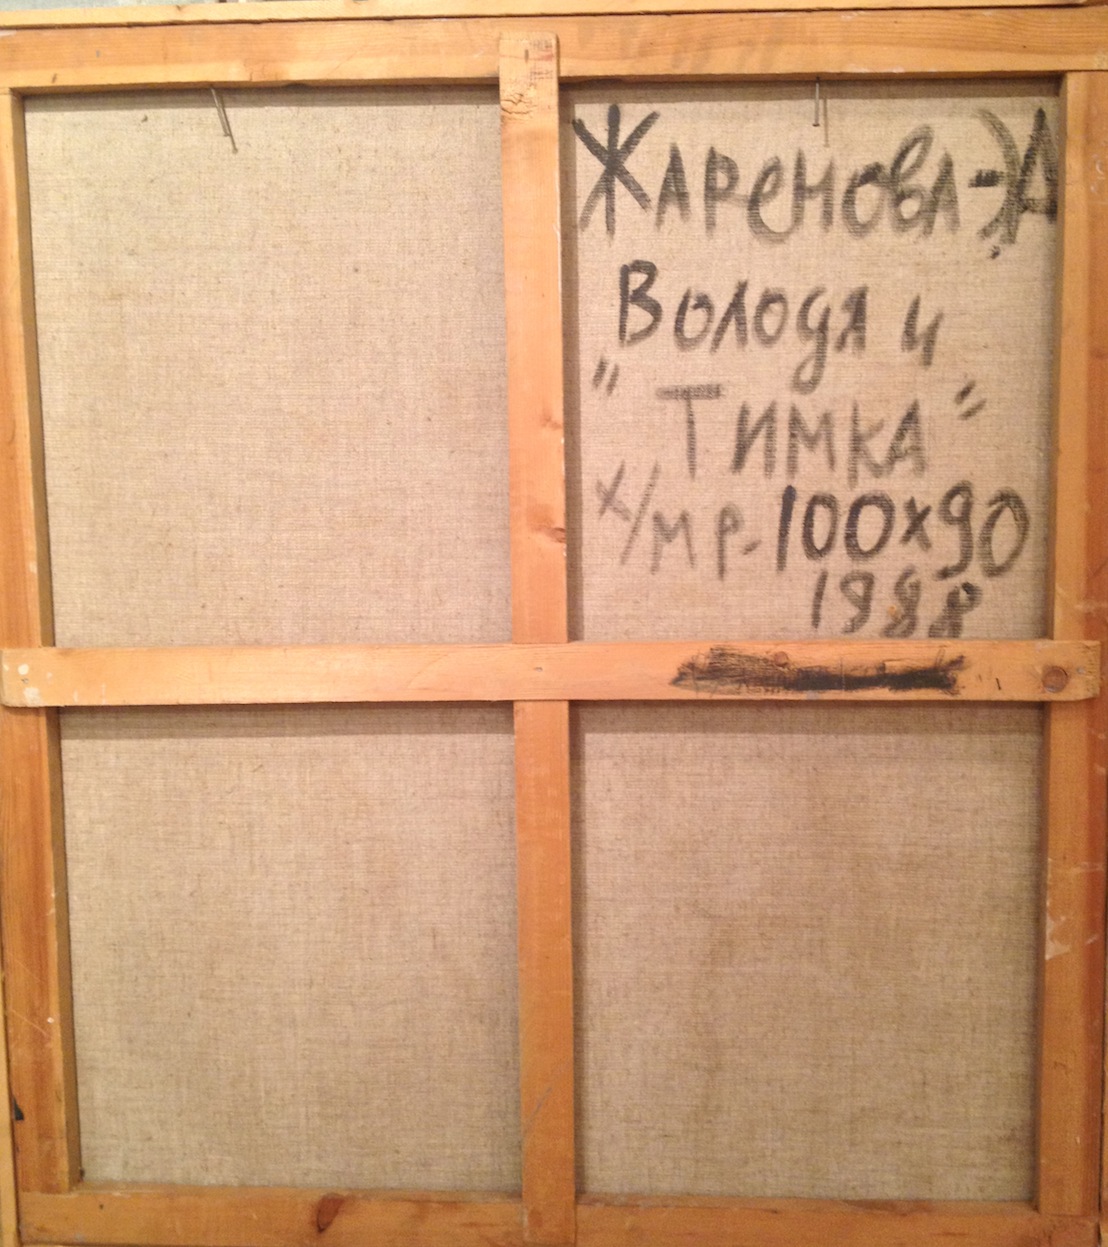 Жаренова-Э А
Володя и
"Тимка"
х/м р-100х90
1988